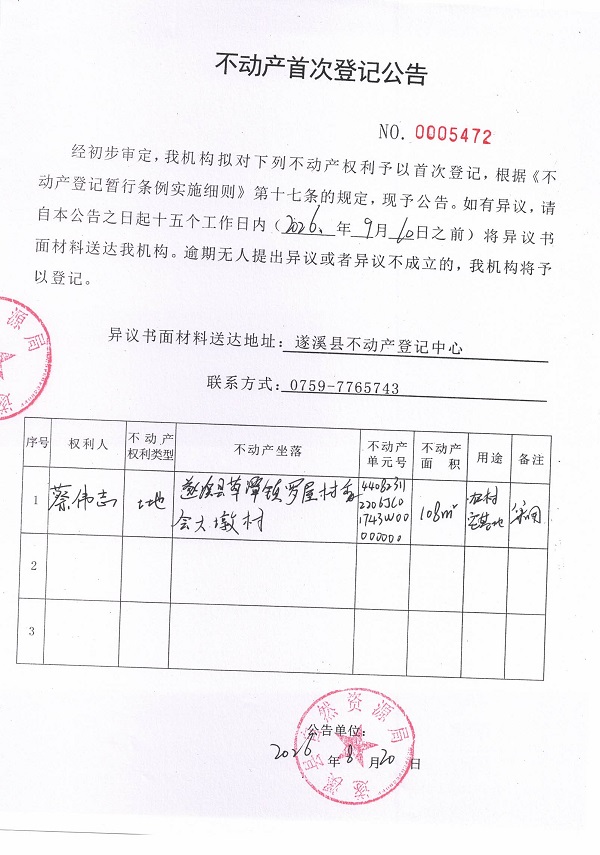 不动产首次登记公告
NO. 0005472
经初步审定，我机构拟对下列不动产权利予以首次登记，根据《不
动产登记暂行条例实施细则》第十七条的规定，现予公告。如有异议，请
自本公告之日起十五个工作日内（2026年9月10日之前）将异议书
面材料送达我机构。逾期无人提出异议或者异议不成立的，我机构将予
以登记。
异议书面材料送达地址：遂溪县不动产登记中心
联系方式：0759-7765743
序号 权利人 不动产权利类型 不动产坐落 不动产单元号 不动产面积 用途 备注
1 蔡伟志 土地 遂溪县草潭镇罗屋村委会大墩村 108m² 农村宅基地
2
3
公告单位：
2026年8月20日
遂溪县自然资源局
源局
遂